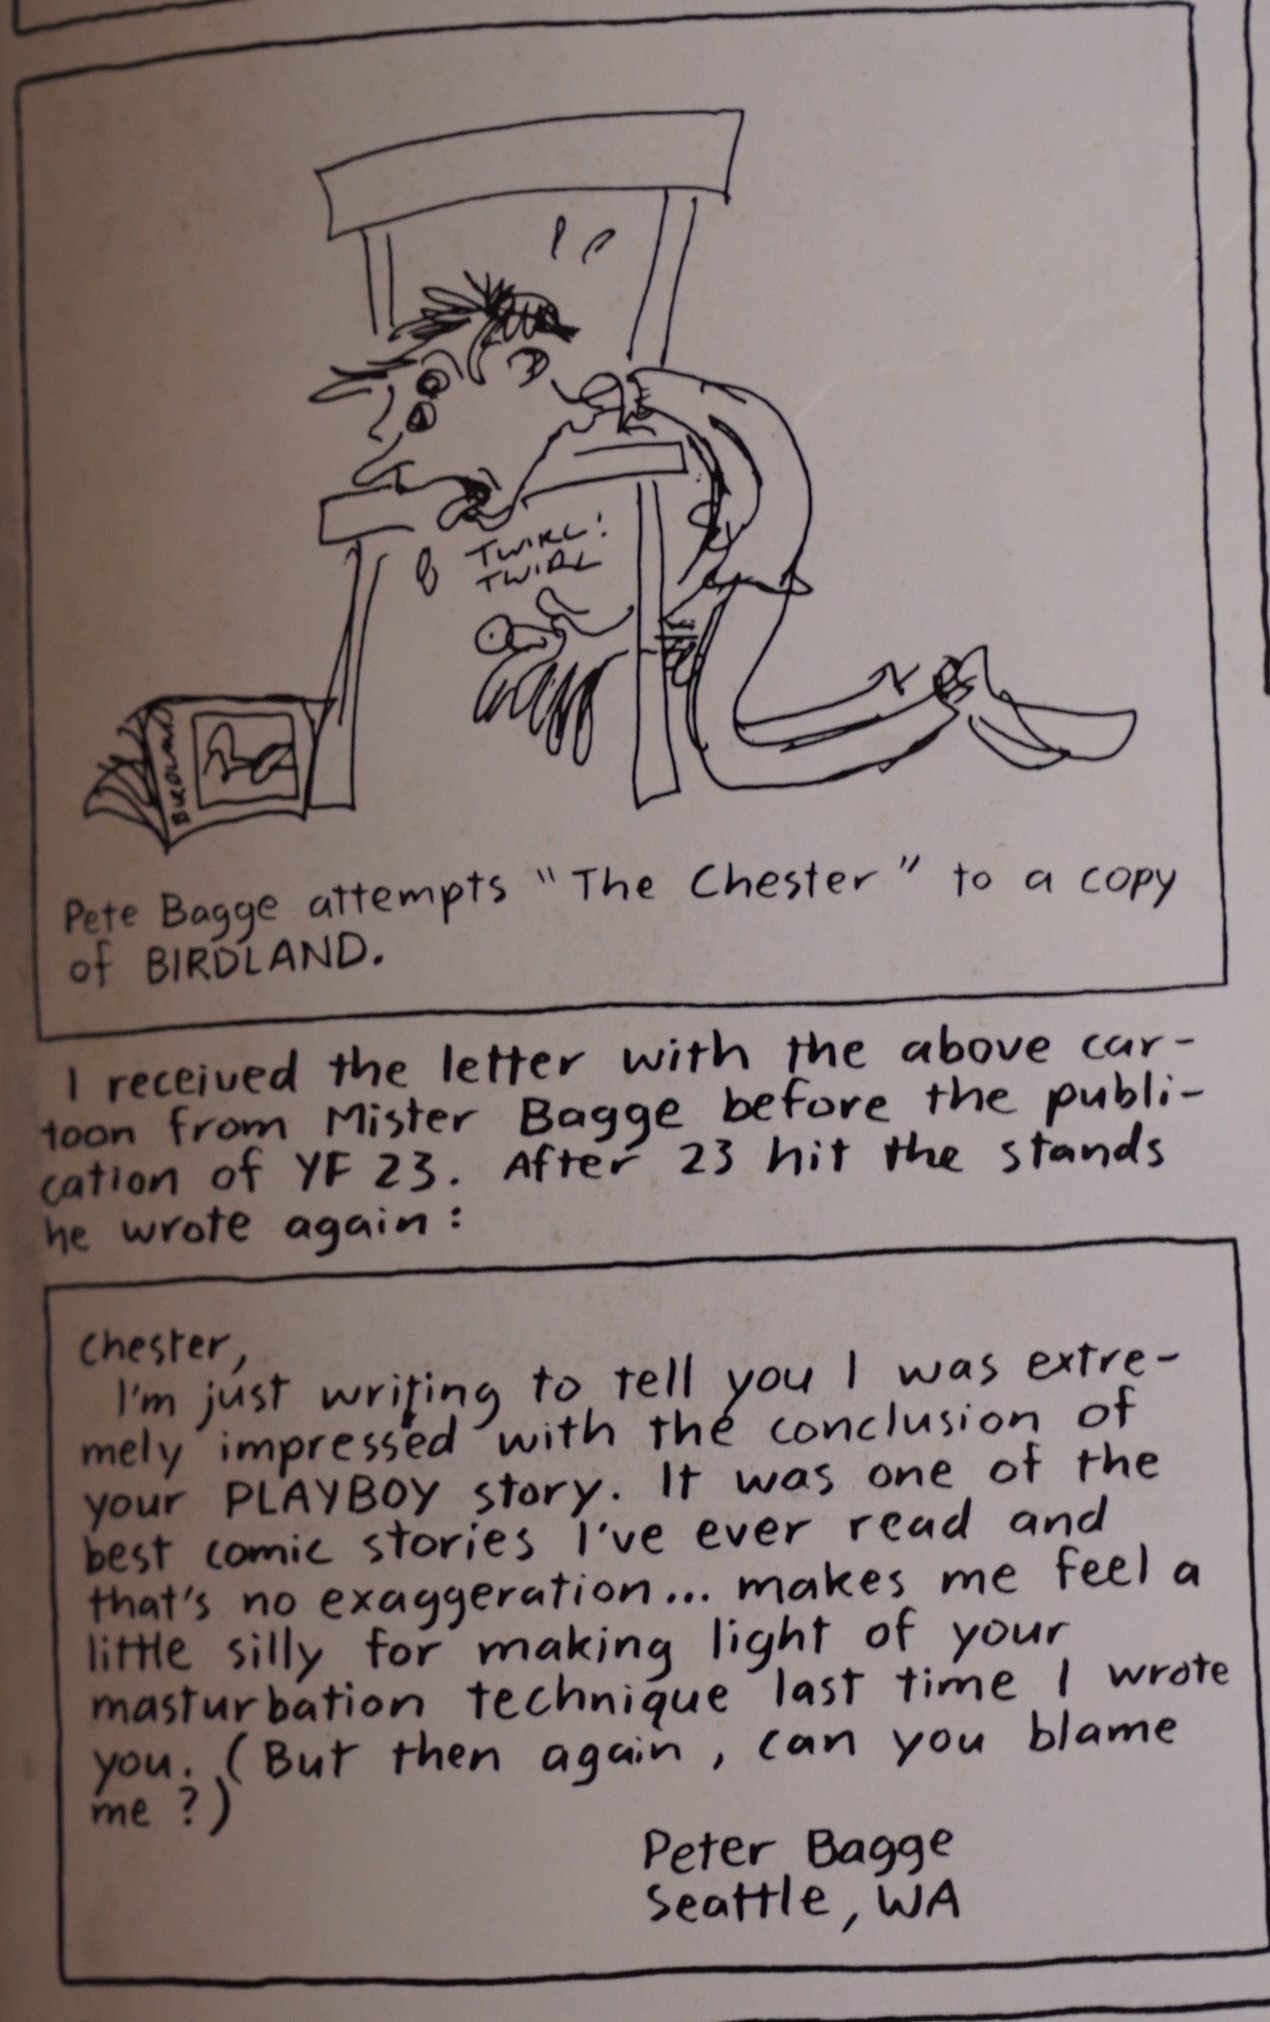 TWIRL!
TWIRL
BIRDLAND
Pete Bagge attempts "The Chester" to a copy
of BIRDLAND.
I received the letter with the above car-
toon from Mister Bagge before the publi-
cation of YF 23. After 23 hit the stands
he wrote again:
Chester,
I'm just writing to tell you I was extre-
mely impressed with the conclusion of
your PLAYBOY story. It was one of the
best comic stories I've ever read and
that's no exaggeration... makes me feel a
little silly for making light of your
masturbation technique last time I wrote
you. (But then again, can you blame
me?)
Peter Bagge
Seattle, WA